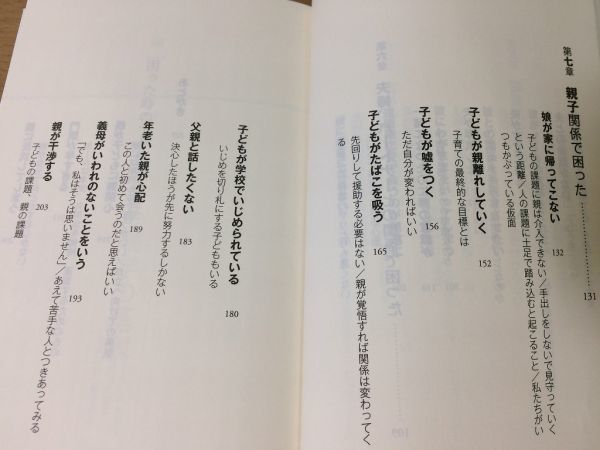 第七章 親子関係で困った 131
娘が家に帰ってこない 132
子どもの課題に親は介入できない/手出しをしないで見守っていく
という距離/人の課題に土足で踏み込むと起こること/私たちがい
つもかぶっている仮面
子どもが親離れしていく 152
子育ての最終的な目標とは
子どもが嘘をつく 156
ただ自分が変わればいい
子どもがたばこを吸う 165
先回りして援助する必要はない/親が覚悟すれば関係は変わってく
る
子どもが学校でいじめられている 180
いじめを切り札にする子どももいる
父親と話したくない 183
決心したほうが先に努力するしかない
年老いた親が心配 189
この人と初めて会うのだと思えばいい
義母がいわれのないことをいう 193
「でも、私はそうは思いません」/あえて苦手な人とつきあってみる
親が干渉する 203
子どもの課題、親の課題